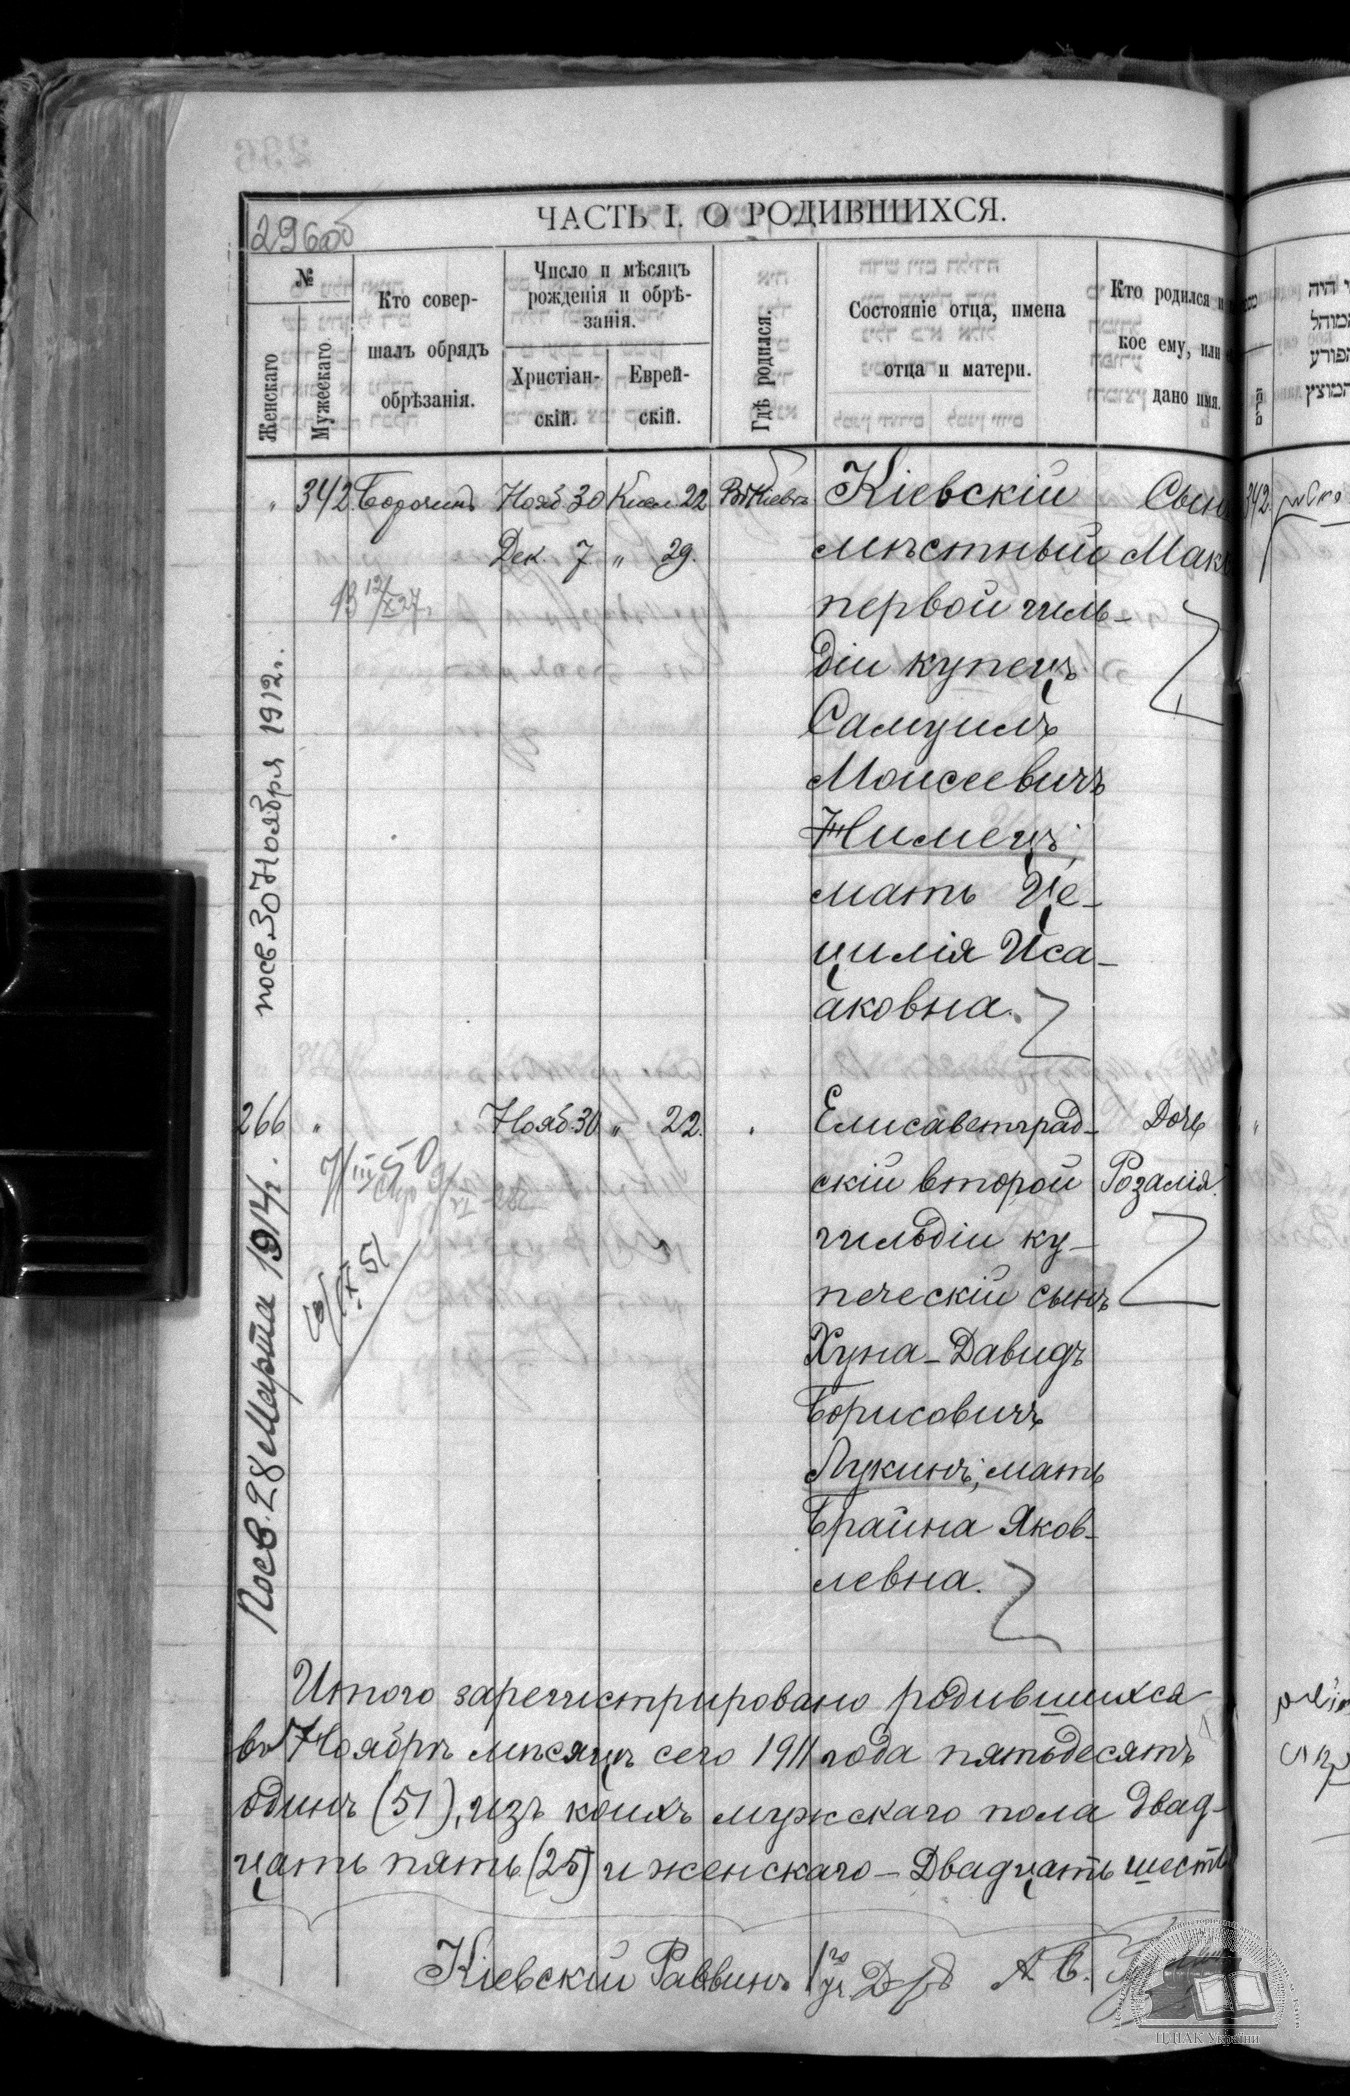 296об
ЧАСТЬ I. О РОДИВШИХСЯ.
№
Женскаго
Мужескаго.
Кто совер-
шалъ обрядъ
обрѣзанія.
Число и мѣсяцъ
рожденія и обрѣ-
занія.
Христіан-
скій.
Еврей-
скій.
Гдѣ родился.
Состояніе отца, имена
отца и матери.
Кто родился и
кое ему, или
дано имя.
" 342. Борочинъ Нояб. 30 Кисл. 22 Въ Кіевѣ Кіевскій Сынъ 342.
Дек. 7 " 29. мѣстный
первой гиль-
діи купецъ
Самуилъ
Моисеевичъ
Нимецъ,
мать Це-
цилія Иса-
аковна.
посв. 30 Ноября 1912 г.
266 " Нояб. 30 " 22. Елисаветград- Дочь "
скій второй Розалія.
гильдіи ку-
печескій сынъ
Хуна-Давидъ
Борисовичъ
Лукинъ, мать
Брайна Яков-
левна.
Посв. 28 Марта 1914 г.
Итого зарегистрировано родившихся
въ Ноябрѣ мѣсяцѣ сего 1911 года пятьдесятъ
одинъ (51), изъ коихъ мужскаго пола двад-
цать пять (25) и женскаго - двадцать шесть
Кіевскій Раввинъ А. Б.
ЦДІАК України